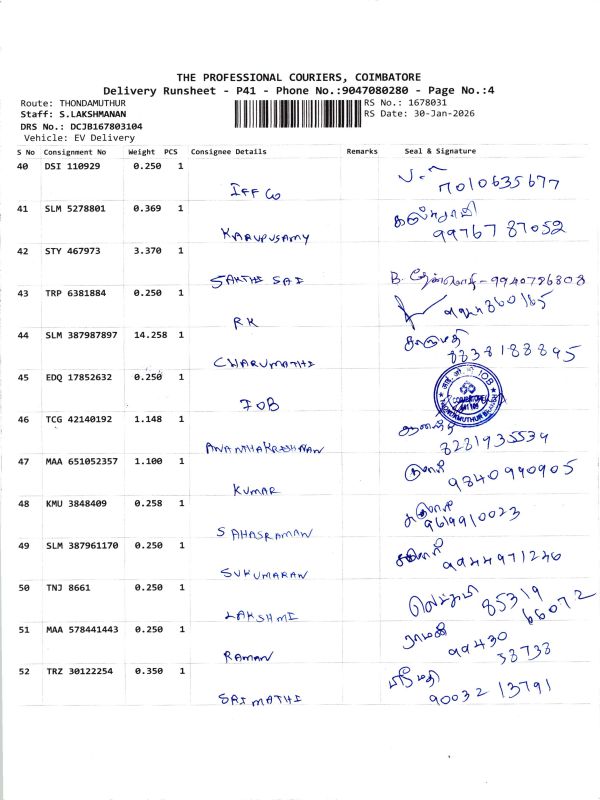 THE PROFESSIONAL COURIERS, COIMBATORE
Delivery Runsheet - P41 - Phone No.:9047080280 - Page No.:4
Route: THONDAMUTHUR RS No.: 1678031
Staff: S.LAKSHMANAN RS Date: 30-Jan-2026
DRS No.: DCJB167803104
Vehicle: EV Delivery
S No Consignment No Weight PCS Consignee Details Remarks Seal & Signature
40 DSI 110929 0.250 1
IFFCO 7010635677
41 SLM 5278801 0.369 1
KARUPUSAMY 99767 87052
42 STY 467973 3.370 1
SAKTHI SAI B. 9940786808
43 TRP 6381884 0.250 1
RK
44 SLM 387987897 14.258 1 சாருமதி
CHARUMATHI 8838188895
45 EDQ 17852632 0.250 1
IOB
46 TCG 42140192 1.148 1
ANANTHAKRISHNAN 8281935534
47 MAA 651052357 1.100 1 குமார்
KUMAR 9840990905
48 KMU 3848409 0.258 1
SAHASRAMAN 9619910023
49 SLM 387961170 0.250 1
SUKUMARAN 9944971246
50 TNJ 8661 0.250 1 85319
LAKSHMI 66072
51 MAA 578441443 0.250 1 ராமன் 99430
RAMAN 58738
52 TRZ 30122254 0.350 1 ஸ்ரீமதி
SRIMATHI 90032 13791